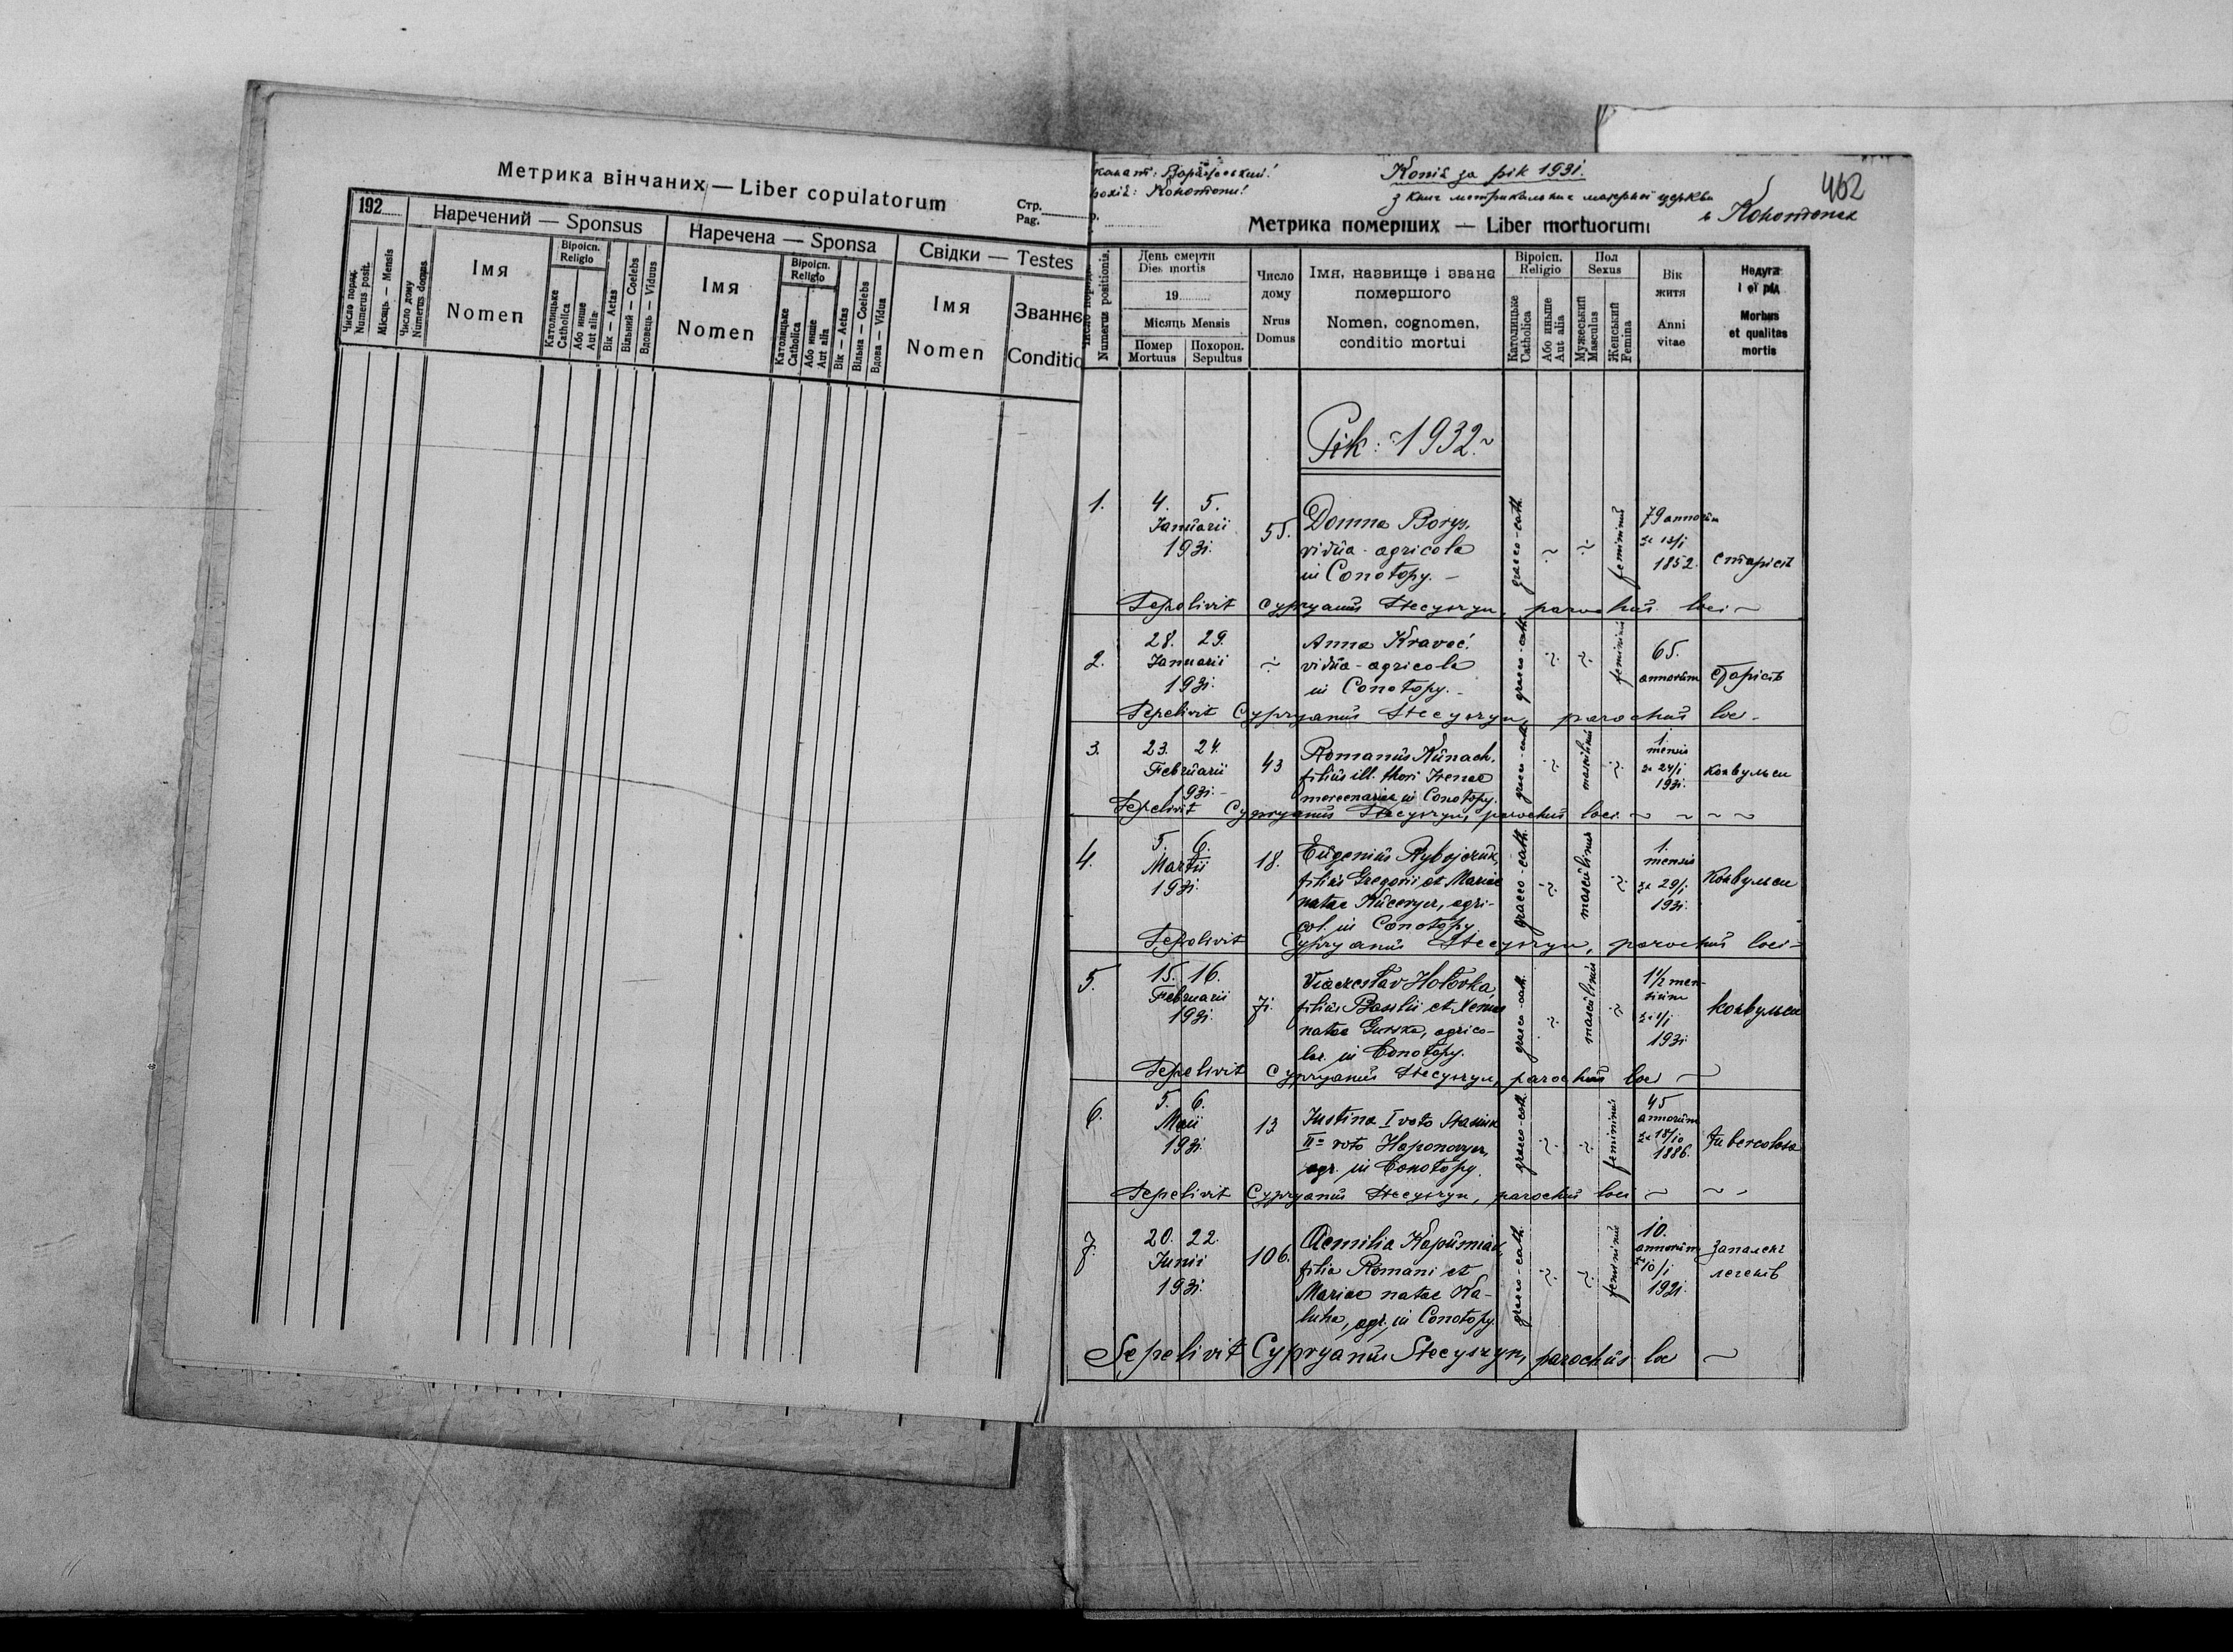 Метрика вінчаних — Liber copulatorum
Стр.
Pag.
192
Наречений — Sponsus
Наречена — Sponsa
Свідки — Testes
Число поряд.
Numerus posit.
Місяць — Mensis
Число дому
Numerus domus
Імя
Nomen
Віроісп.
Religio
Католицьке
Catholica
Або инше
Aut alia
Вік — Aetas
Вільний — Coelebs
Вдовець — Viduus
Імя
Nomen
Віроісп.
Religio
Католицьке
Catholica
Або инше
Aut alia
Вік — Aetas
Вільна — Coelebs
Вдова — Vidua
Імя
Nomen
Званнє
Conditio
Копія за рік 1931.
з книг метрикальних матерної церкви
в Конотопах
462
Метрика померших — Liber mortuorum
Numerus positionis.
День смерти
Dies mortis
19
Місяць Mensis
Помер
Mortuus
Похорон.
Sepultus
Число
дому
Nrus
Domus
Імя, назвище і званє
помершого
Nomen, cognomen,
conditio mortui
Віроісп.
Religio
Католицьке
Catholica
Або иньше
Aut alia
Пол
Sexus
Мужеський
Masculus
Женський
Femina
Вік
житя
Anni
vitae
Недуга
і єї рід
Morbus
et qualitas
mortis
Рік: 1932
1. 4. 5. Januarii 1931. 55. Domna Borys,
vidua - agricola
in Conotopy. —
graeco-cath. femininus 79 annorum 13/1 1852. старість
Sepelivit Cypryanus Stecyszyn, parochus loci
2. 28. 29. Januarii 1931. Anna Kraveć.
vidua - agricola
in Conotopy. —
graeco-cath. femininus 65. annorum старість
Sepelivit Cypryanus Stecyszyn, parochus loci
3. 23. 24. Februarii 1931. 43 Romanus Kunach.
filius ill. thori Irenae
mercenariae in Conotopy.
graeco-cath. masculinus 1. mensis 24/1 1931. конвульси
Sepelivit Cypryanus Stecyszyn, parochus loci
4. 5. 6. Martii 1931. 18. Eugenius Rybojczuk,
filius Gregorii et Mariae
natae Kuceryer, agri-
col. in Conotopy
graeco-cath. masculinus 1. mensis 29/1 1931. конвульси
Sepelivit Cypryanus Stecyszyn, parochus loci
5. 15. 16. Februarii 1931. 71. Viaczeslav Holovka,
filius Basilii et Xeniae
natae Gurska, agrico-
lar. in Conotopy.
graeco-cath. masculinus 1 1/2 mensium 1/1 1931 конвульси
Sepelivit Cypryanus Stecyszyn, parochus loci
6. 5. 6. Maii 1931. 13 Justina I voto Stasiuk
II voto Haponowyer,
agr. in Conotopy.
graeco-cath. femininus 45 annorum 18/10 1886. tubercolosa
Sepelivit Cypryanus Stecyszyn, parochus loci
7. 20. 22. Junii 1931. 106. Aemilia Kapusniak,
filia Romani et
Mariae natae Ka-
luha, agr. in Conotopy
graeco-cath. femininus 10. annorum 10/1 1921. запаленє легенів
Sepelivit Cypryanus Stecyszyn, parochus loci